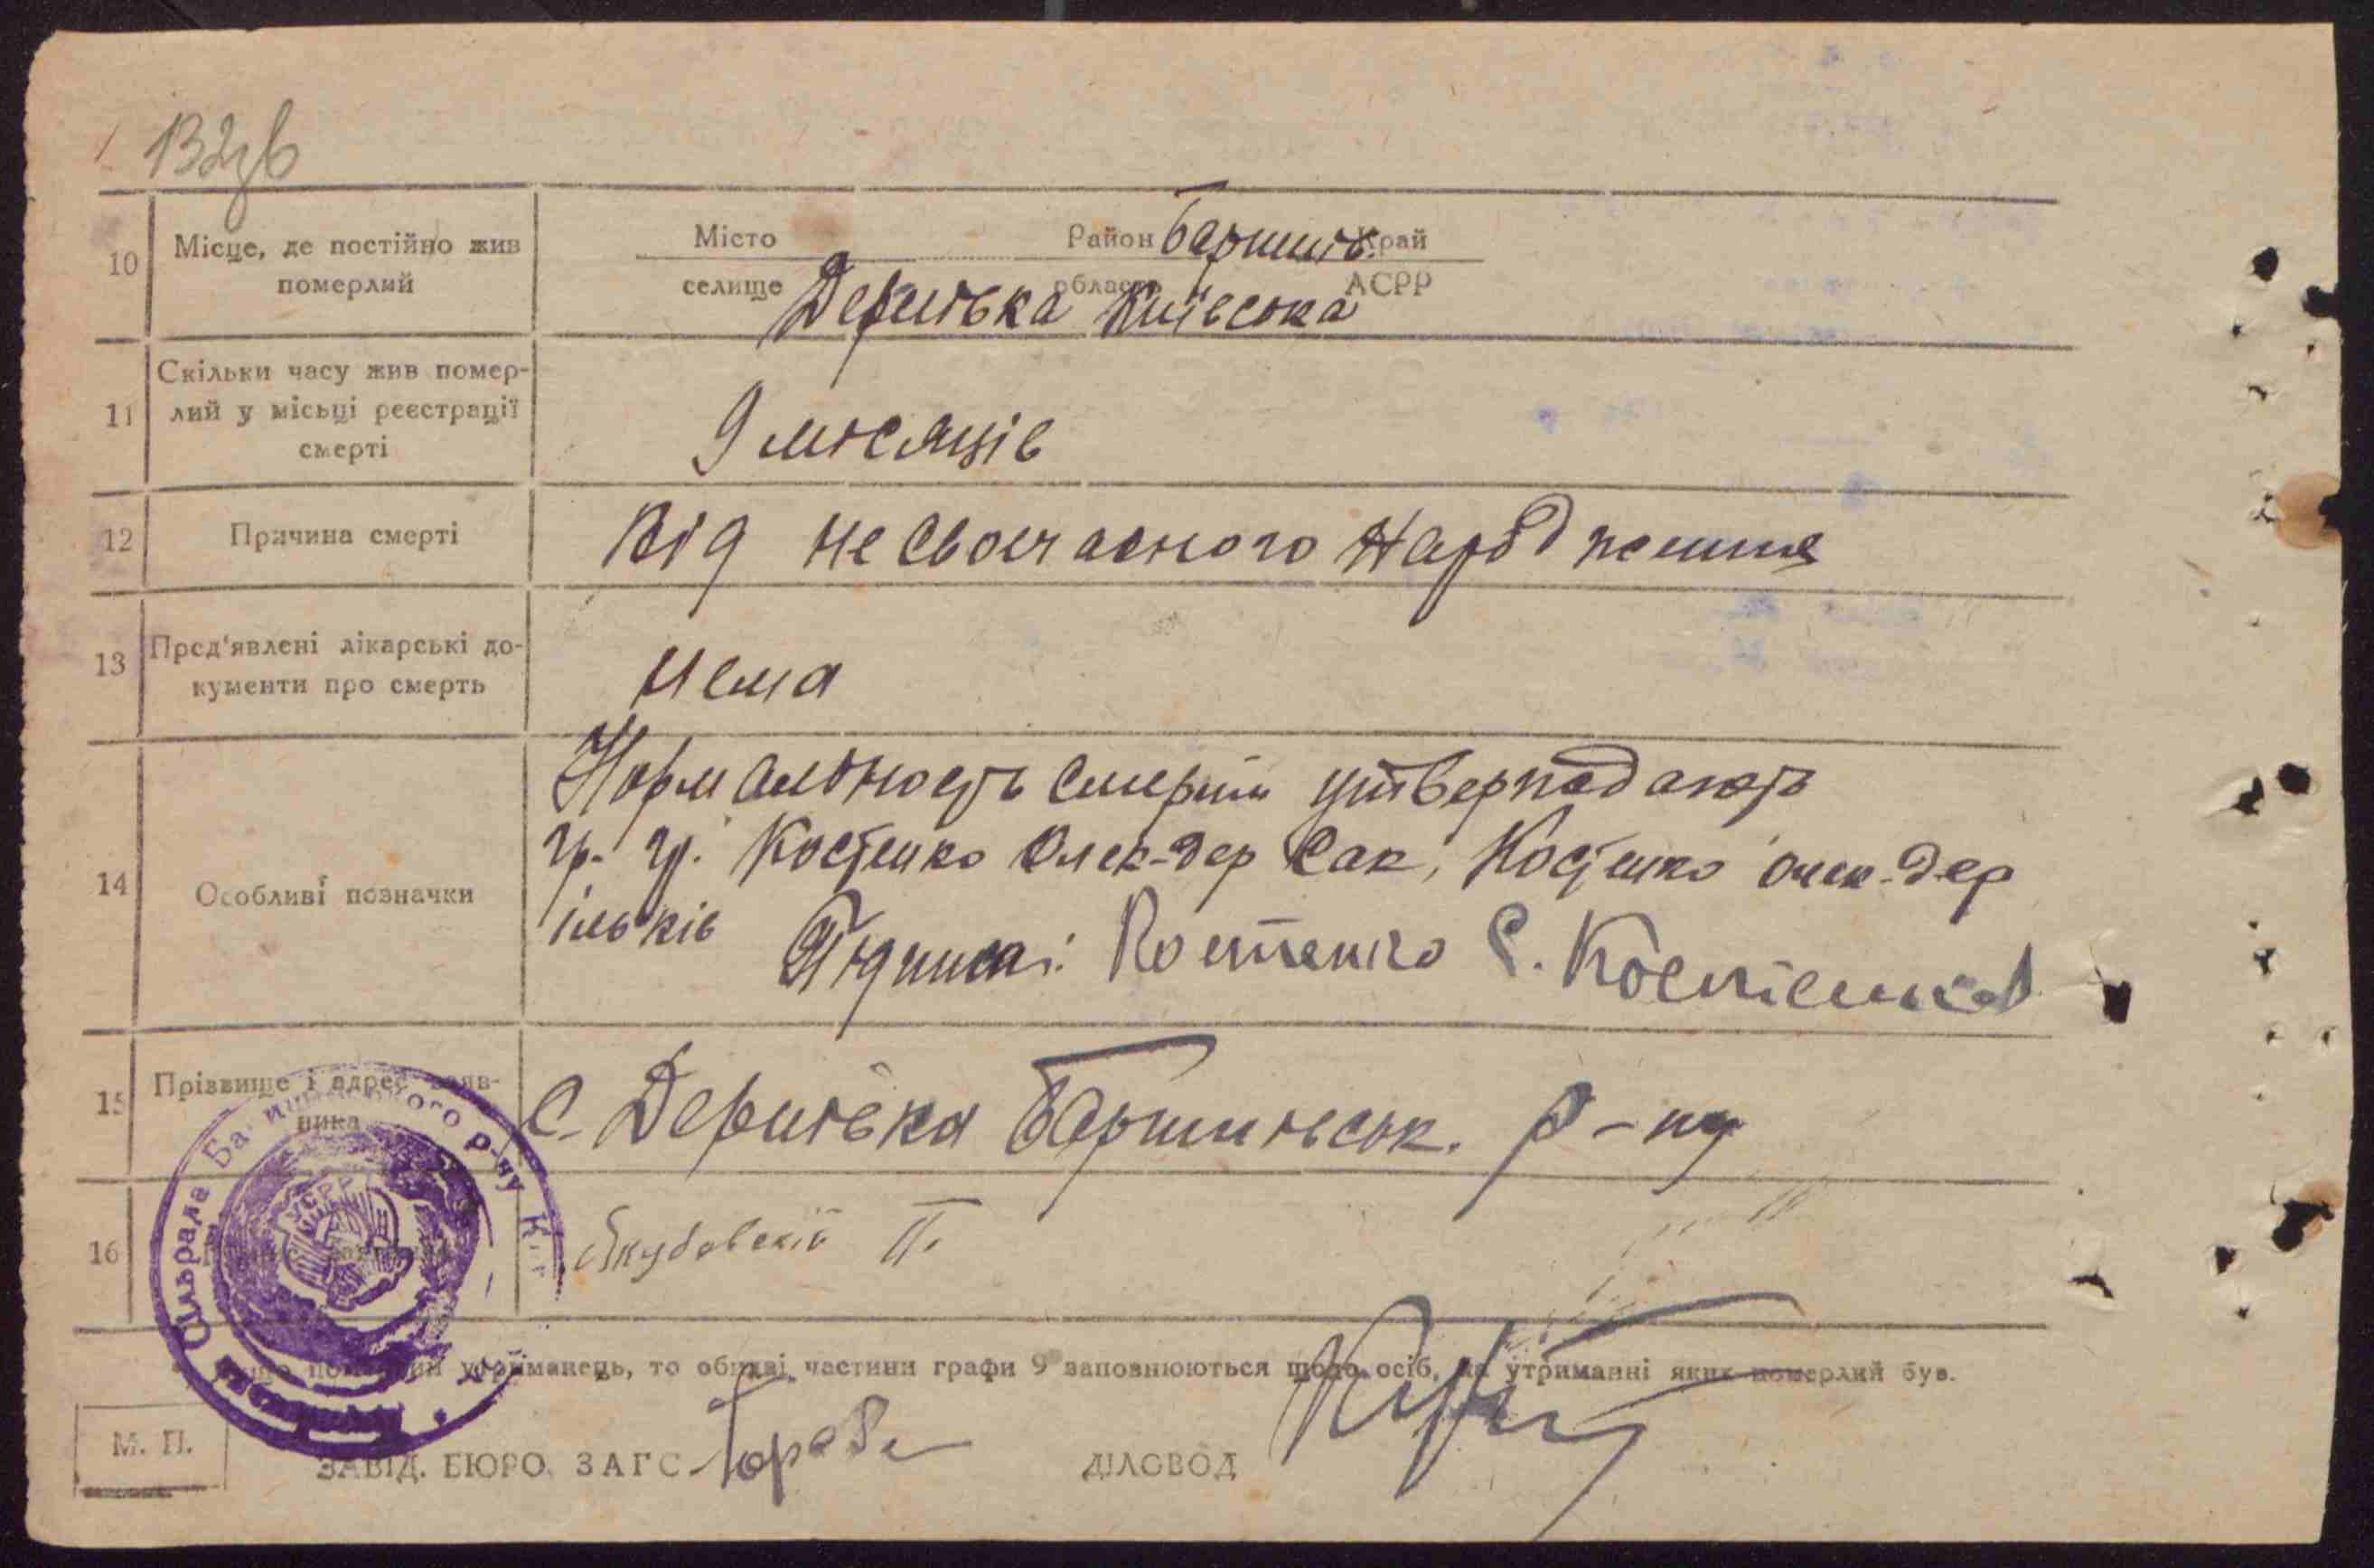 132зв
10
Місце, де постійно жив
померлий
Місто Район Баришів. Край
селище Дернівка область Київсока АСРР
11
Скільки часу жив помер-
лий у місьці реєстрації
смерті
9 місяців
12
Причина смерті
Від не своєчасного народження
13
Пред'явлені лікарські до-
кументи про смерть
Нема
14
Особливі позначки
Нормальность смерти утверждають
гр. гр. Костенко Олек-дер Сак, Костенко Олек-дер
ільків Підписи: Костенко С. Костенко
15
Прізвище і адрес заяв-
ника
С. Дернівка Баришівськ. р-ну
16
Якубовский П.
утриманець, то обидві частини графи 9 заповнюються щодо осіб, на утриманні яких померлий був.
М. П.
ЗАВІД. БЮРО ЗАГС
ДІЛОВОД
Сільрада Ба р-ну
УСРР